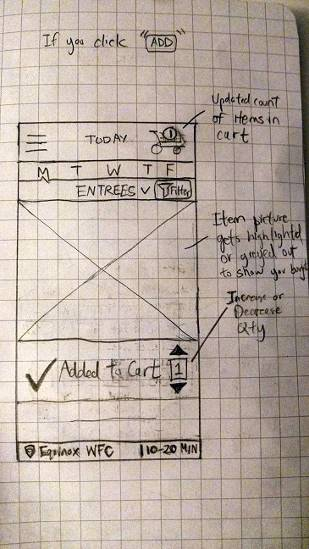 If you click "ADD"
Updated count
of items in
cart
TODAY
1
M T W T F
ENTREES
Filter
Item picture
gets highlighted
or greyed out
to show you bought
Increase or
Decrease
Qty
Added to Cart 1
Equinox WFC 10-20 MIN